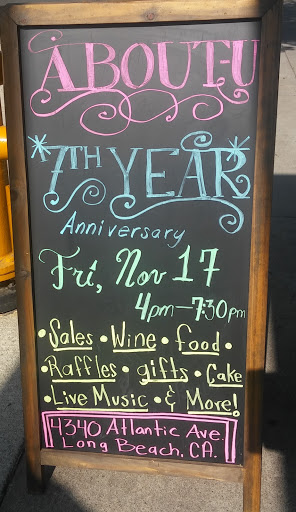 ABOUT-U
*7TH YEAR*
Anniversary
Fri, Nov 17
4pm-7:30pm
• Sales • Wine • food •
• Raffles • gifts • Cake
• Live Music • & More!
4340 Atlantic Ave.
Long Beach, CA.